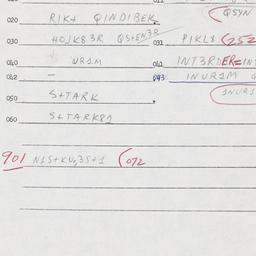 020 RIK+ QINDIBEK
QSYN
030 HOJK83R QS+EN3R
031 PIKL8 (252
040 UR1M
041 INT3RDER=IN
042 -
043 INUR1M
050 S+TARK
INUR1
060 S+TARK81
901 N1S+KU,3S+1 (072